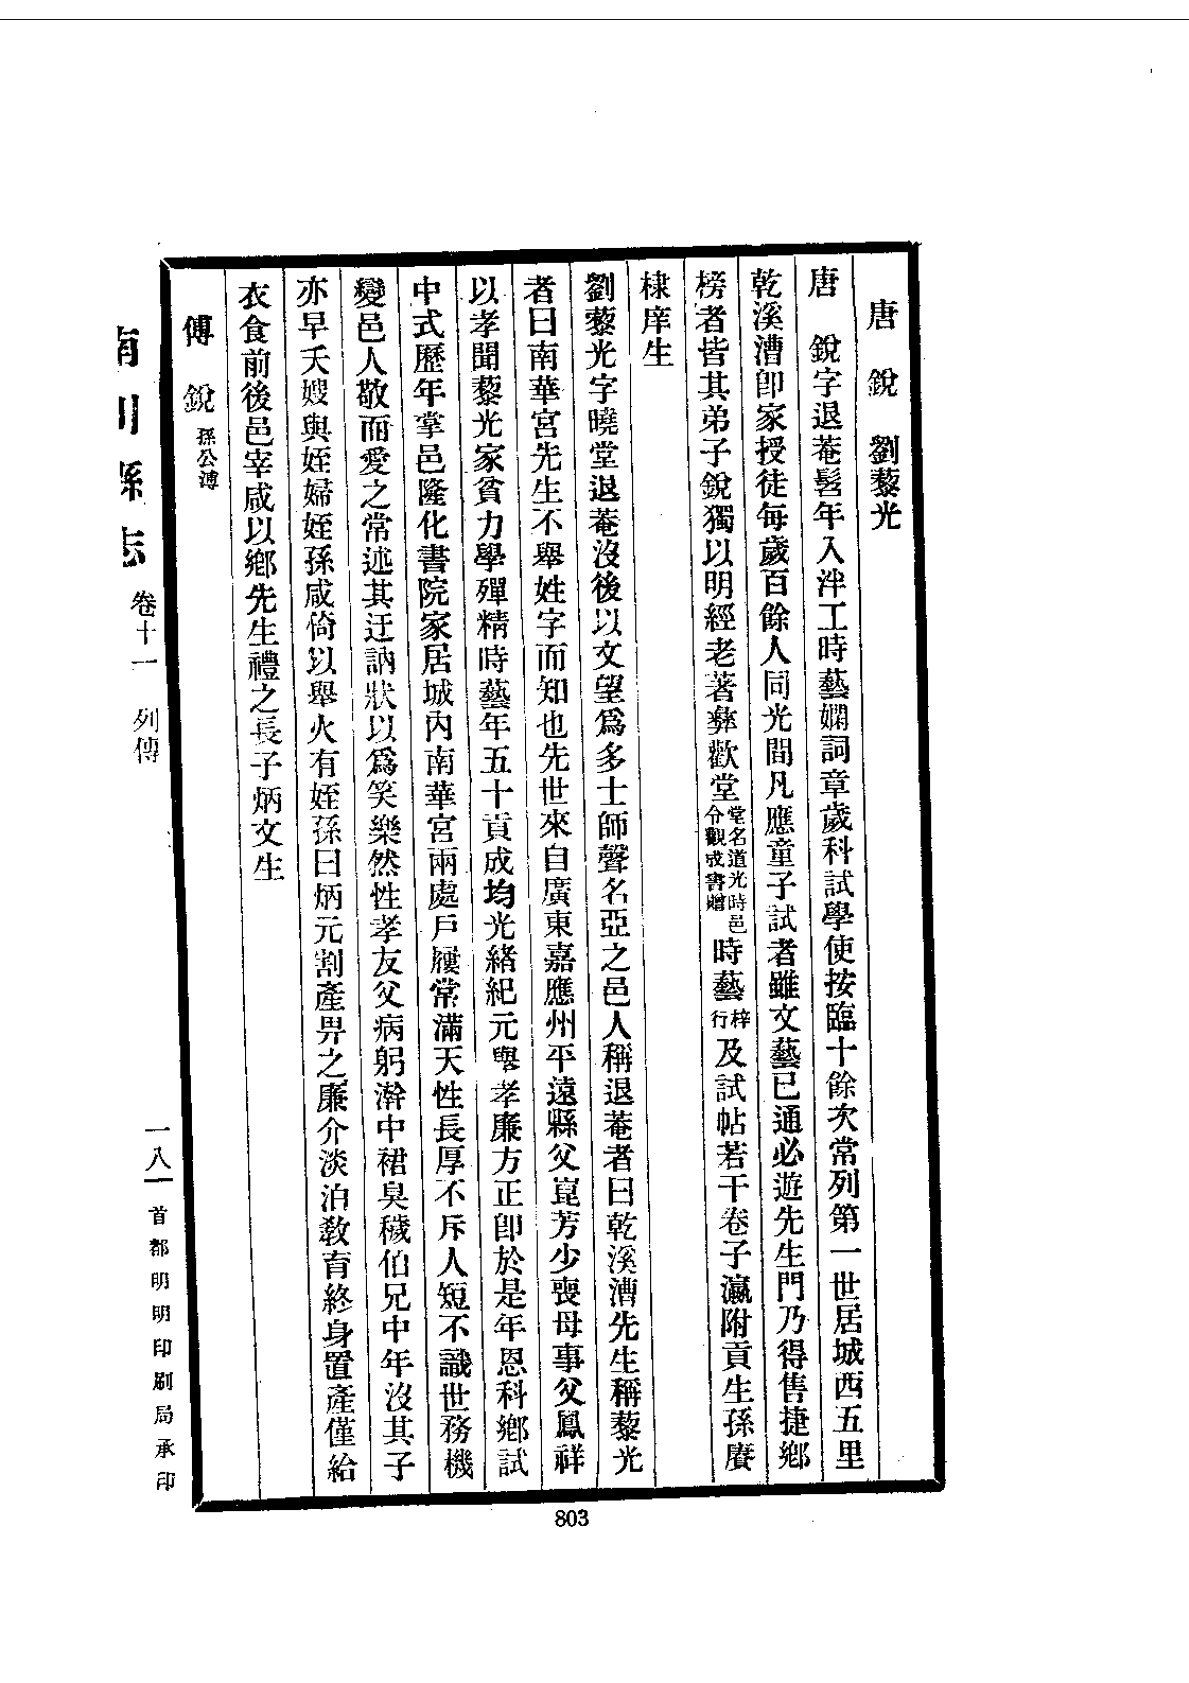 唐 銳 劉藜光
唐 銳字退菴髫年入泮工時藝嫻詞章歲科試學使按臨十餘次常列第一世居城西五里
乾溪漕卽家授徒每歲百餘人同光間凡應童子試者雖文藝已通必遊先生門乃得售捷鄉
榜者皆其弟子銳獨以明經老著彝歡堂堂名道光時邑令觀成書贈時藝梓行及試帖若干卷子瀛附貢生孫賡
棣庠生
劉藜光字曉堂退菴沒後以文望爲多士師聲名亞之邑人稱退菴者曰乾溪漕先生稱藜光
者曰南華宮先生不舉姓字而知也先世來自廣東嘉應州平遠縣父崑芳少喪母事父鳳祥
以孝聞藜光家貧力學殫精時藝年五十貢成均光緒紀元舉孝廉方正卽於是年恩科鄉試
中式歷年掌邑隆化書院家居城內南華宮兩處戶屨常滿天性長厚不斥人短不識世務機
變邑人敬而愛之常述其迂訥狀以爲笑樂然性孝友父病躬澣中裙臭穢伯兄中年沒其子
亦早夭嫂與姪婦姪孫咸倚以舉火有姪孫曰炳元割產畀之廉介淡泊敎育終身置產僅給
衣食前後邑宰咸以鄉先生禮之長子炳文生
傅 銳 孫公溥
南川縣志 卷十一 列傳 一八一 首都明明印刷局承印
803